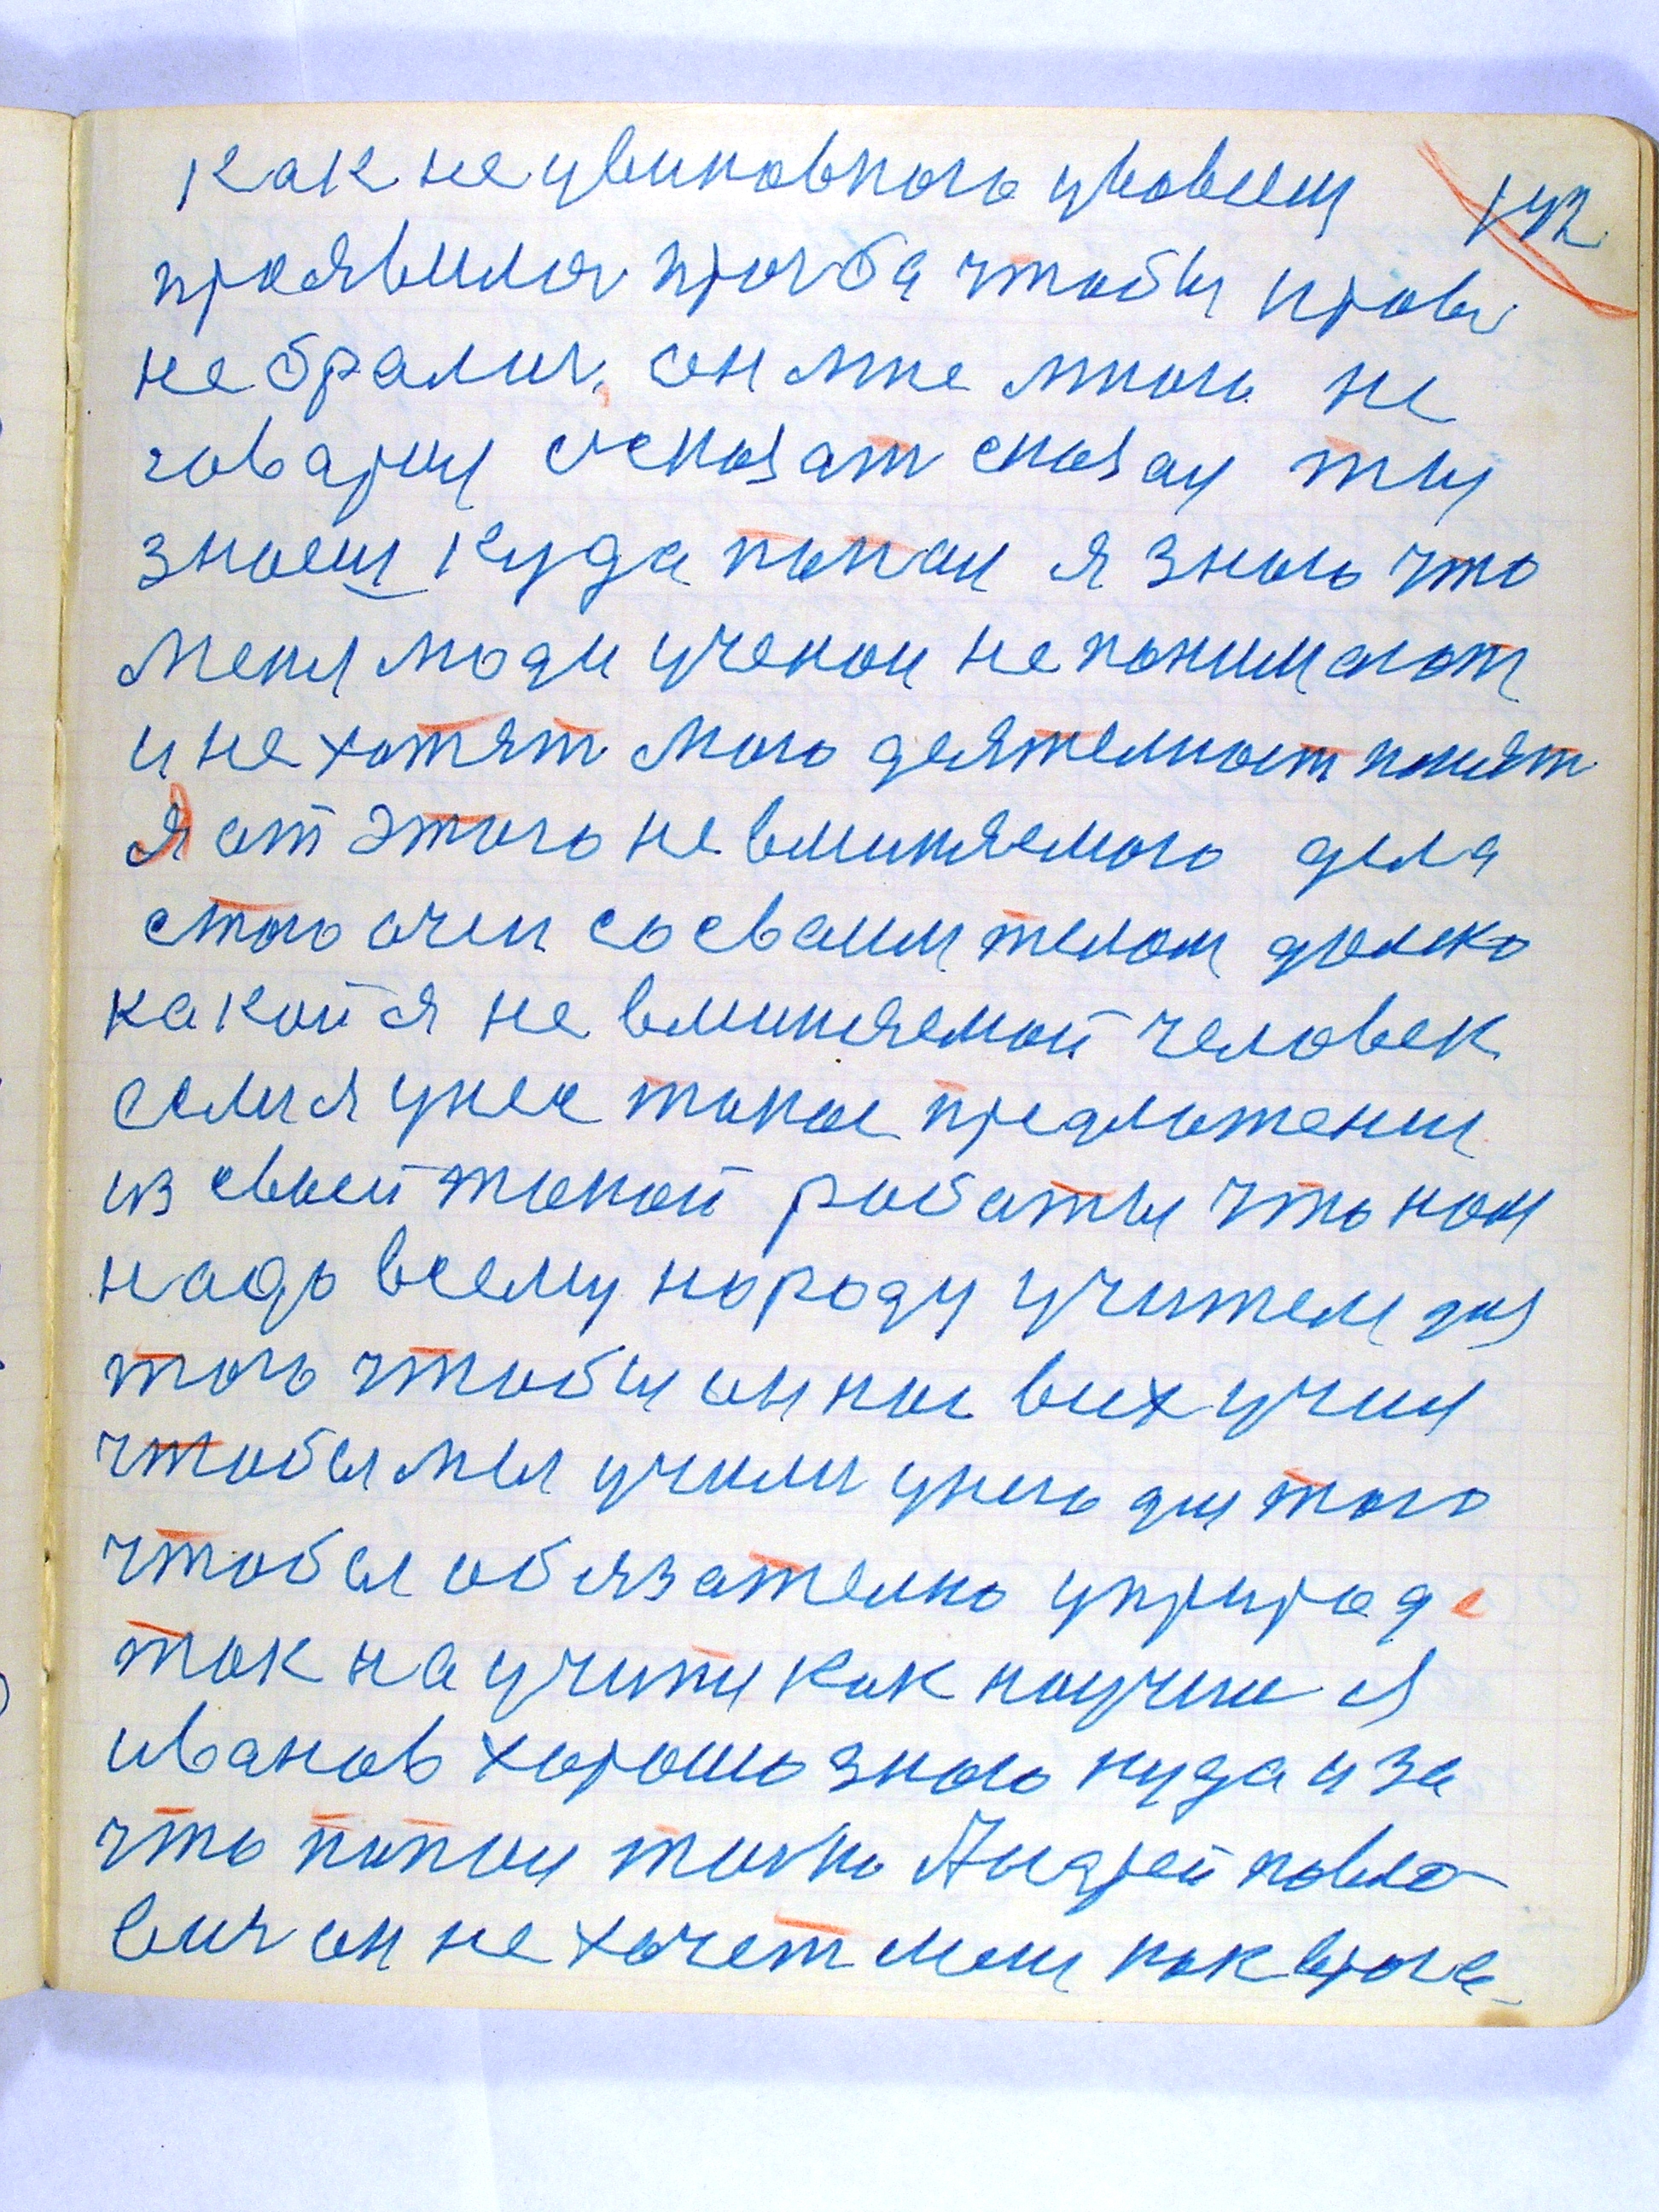 142
как не увиновного уловеш
проявилося прозба чтобы кров
не брали. он мне много не
говарил осказат сказал ты
знаеш куда попал я знаю что
меня люди ученои не понимают
и не хотят мою деятелност понят
Я от этого невминяемого дела
стаю очен со сваим телом далеко
какой я не вминяемой человек
если я унес такое предложении
из своей такой работы что нам
надо всему народу учител для
того чтобы он нас всих учил
чтобы мы учили унего для того
чтобы обязателно уприроде
так научится как научился
иванов хорошо знаю куда и за
что попал толко Андрей павло-
вич он не хочет меня как враче-